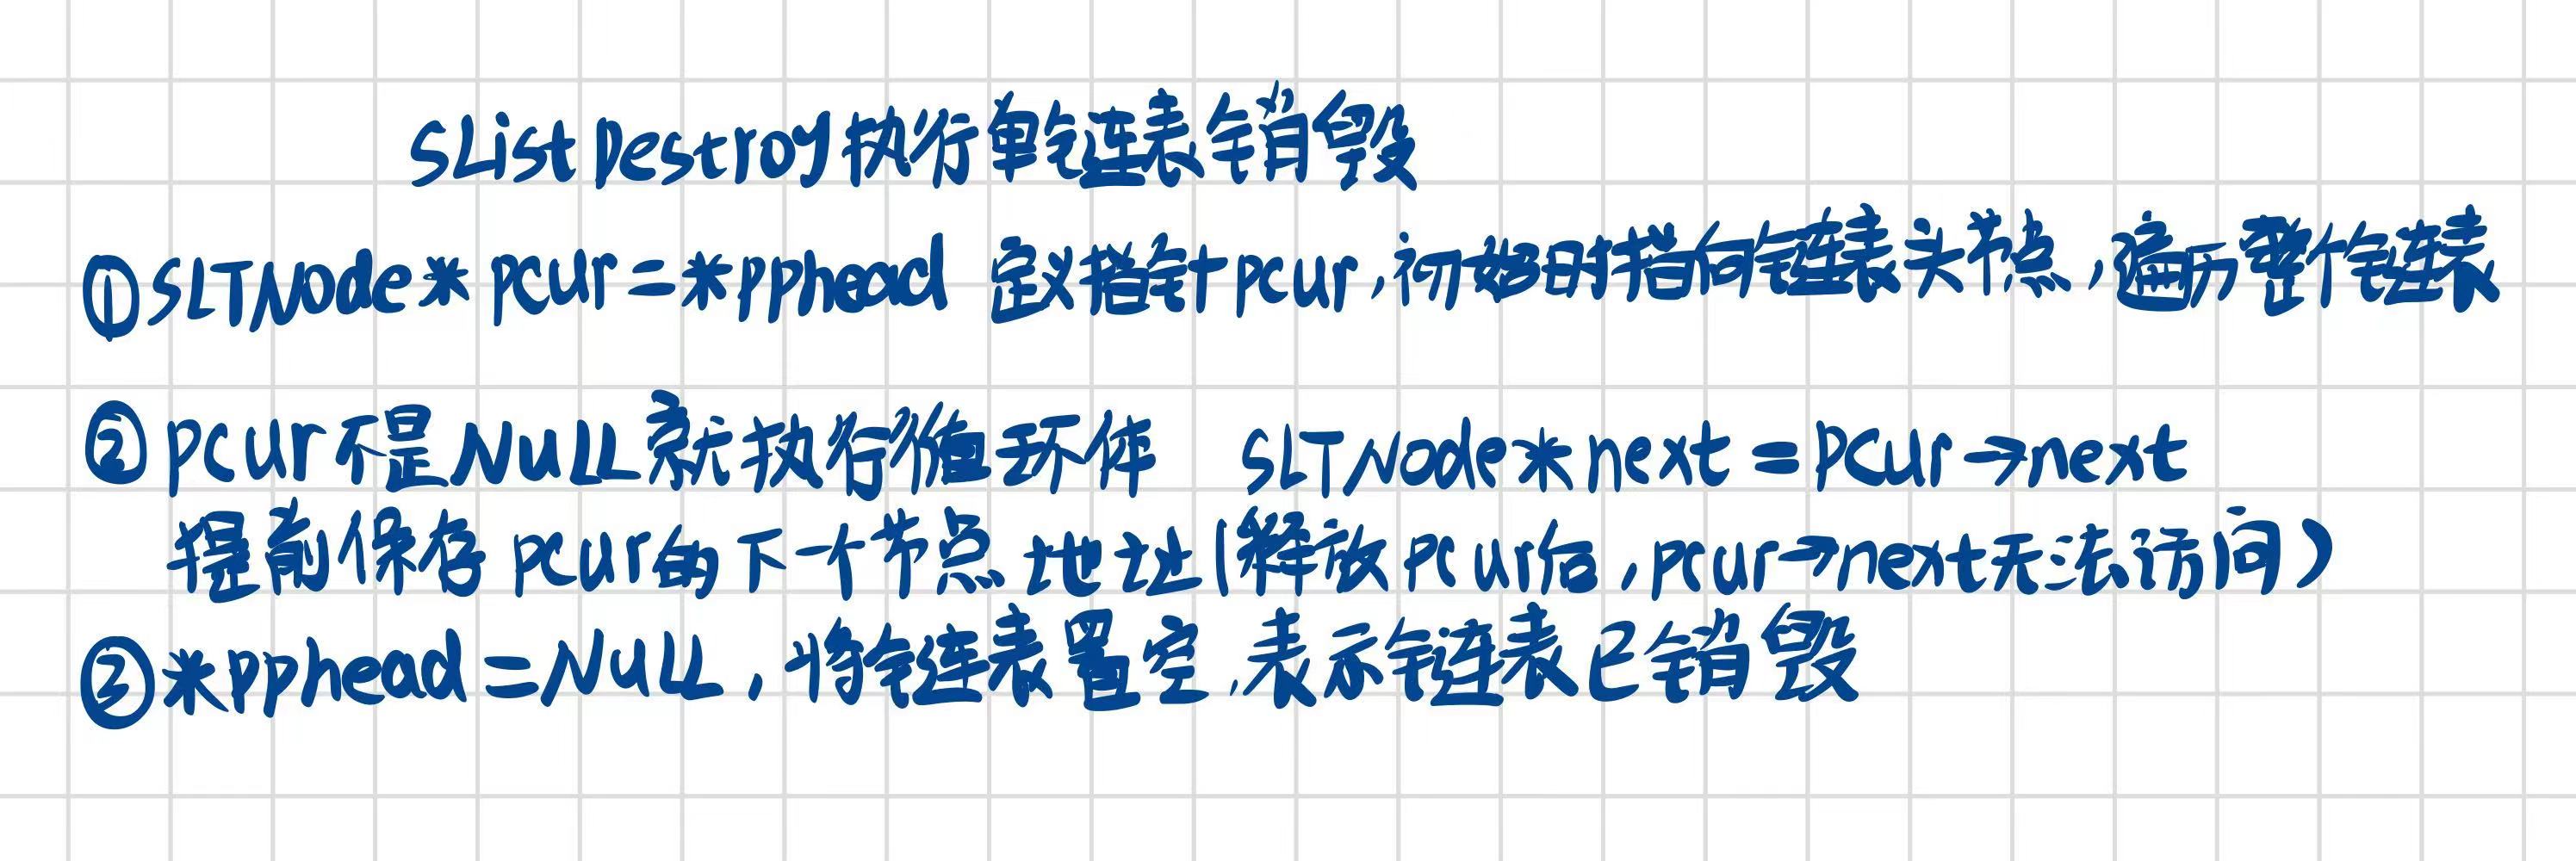 SListDestroy执行单链表销毁
①SLTNode* pcur=*pphead 定义指针pcur,初始时指向链表头节点,遍历整个链表
②pcur不是NULL就执行循环体 SLTNode*next=pcur→next
提前保存pcur的下一个节点地址(释放pcur后,pcur→next无法访问)
③*pphead=NULL,将链表置空,表示链表已销毁